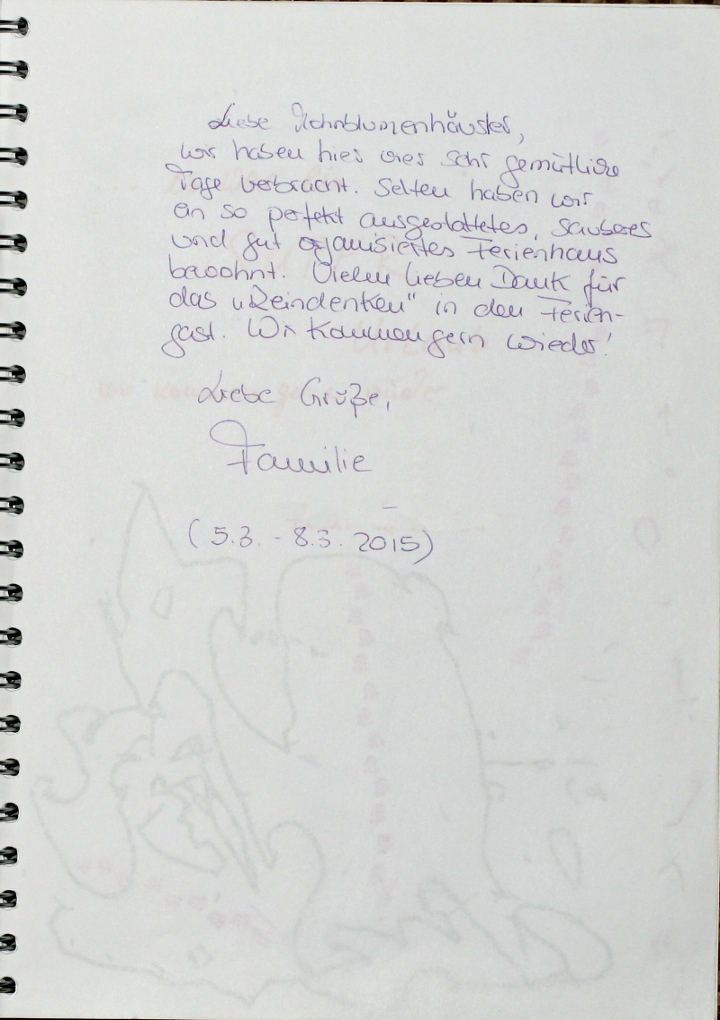 Liebe Mohnblumenhäusler,
wir haben hier vier sehr gemütliche
Tage verbracht. Selten haben wir
ein so perfekt ausgestattetes, sauberes
und gut organisiertes Ferienhaus
bewohnt. Vielen lieben Dank für
das „Reindenken" in den Ferien-
gast. Wir kommen gern wieder!
Liebe Grüße,
Familie
(5.3. - 8.3. 2015)